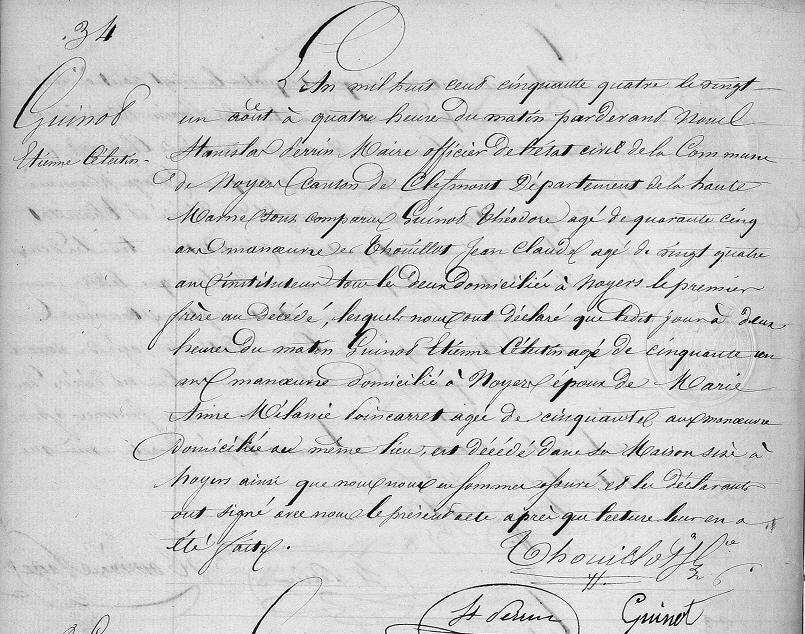 34
Guinot
Etienne Célestin
L'An mil huit cent cinquante quatre le vingt
un août à quatre heure du matin pardevant Nous
Stanislas Perrin Maire officier de l'état civil de la Commune
de Noyers Canton de Clefmont Département de la haute
Marne sont comparus Guinot Théodore agé de quarante cinq
ans manœuvre et Thouillot Jean Claude agé de vingt quatre
ans instituteur tous les deux domiciliés à Noyers le premier
frère au décédé, lesquels nous ont déclaré que ledit jour à deux
heures du matin Guinot Etienne Célestin agé de cinquante un
ans manœuvre domicilié à Noyers époux de Marie
Anne Mélanie Poincarret agée de cinquante ans manœuvre
domiciliée au même lieu, est décédé dans sa Maison sise à
Noyers ainsi que nous nous en sommes assuré et les déclarants
ont signé avec nous le présent acte après que lecture leur en a
été faite.
Thouillot J
St Perrin Guinot